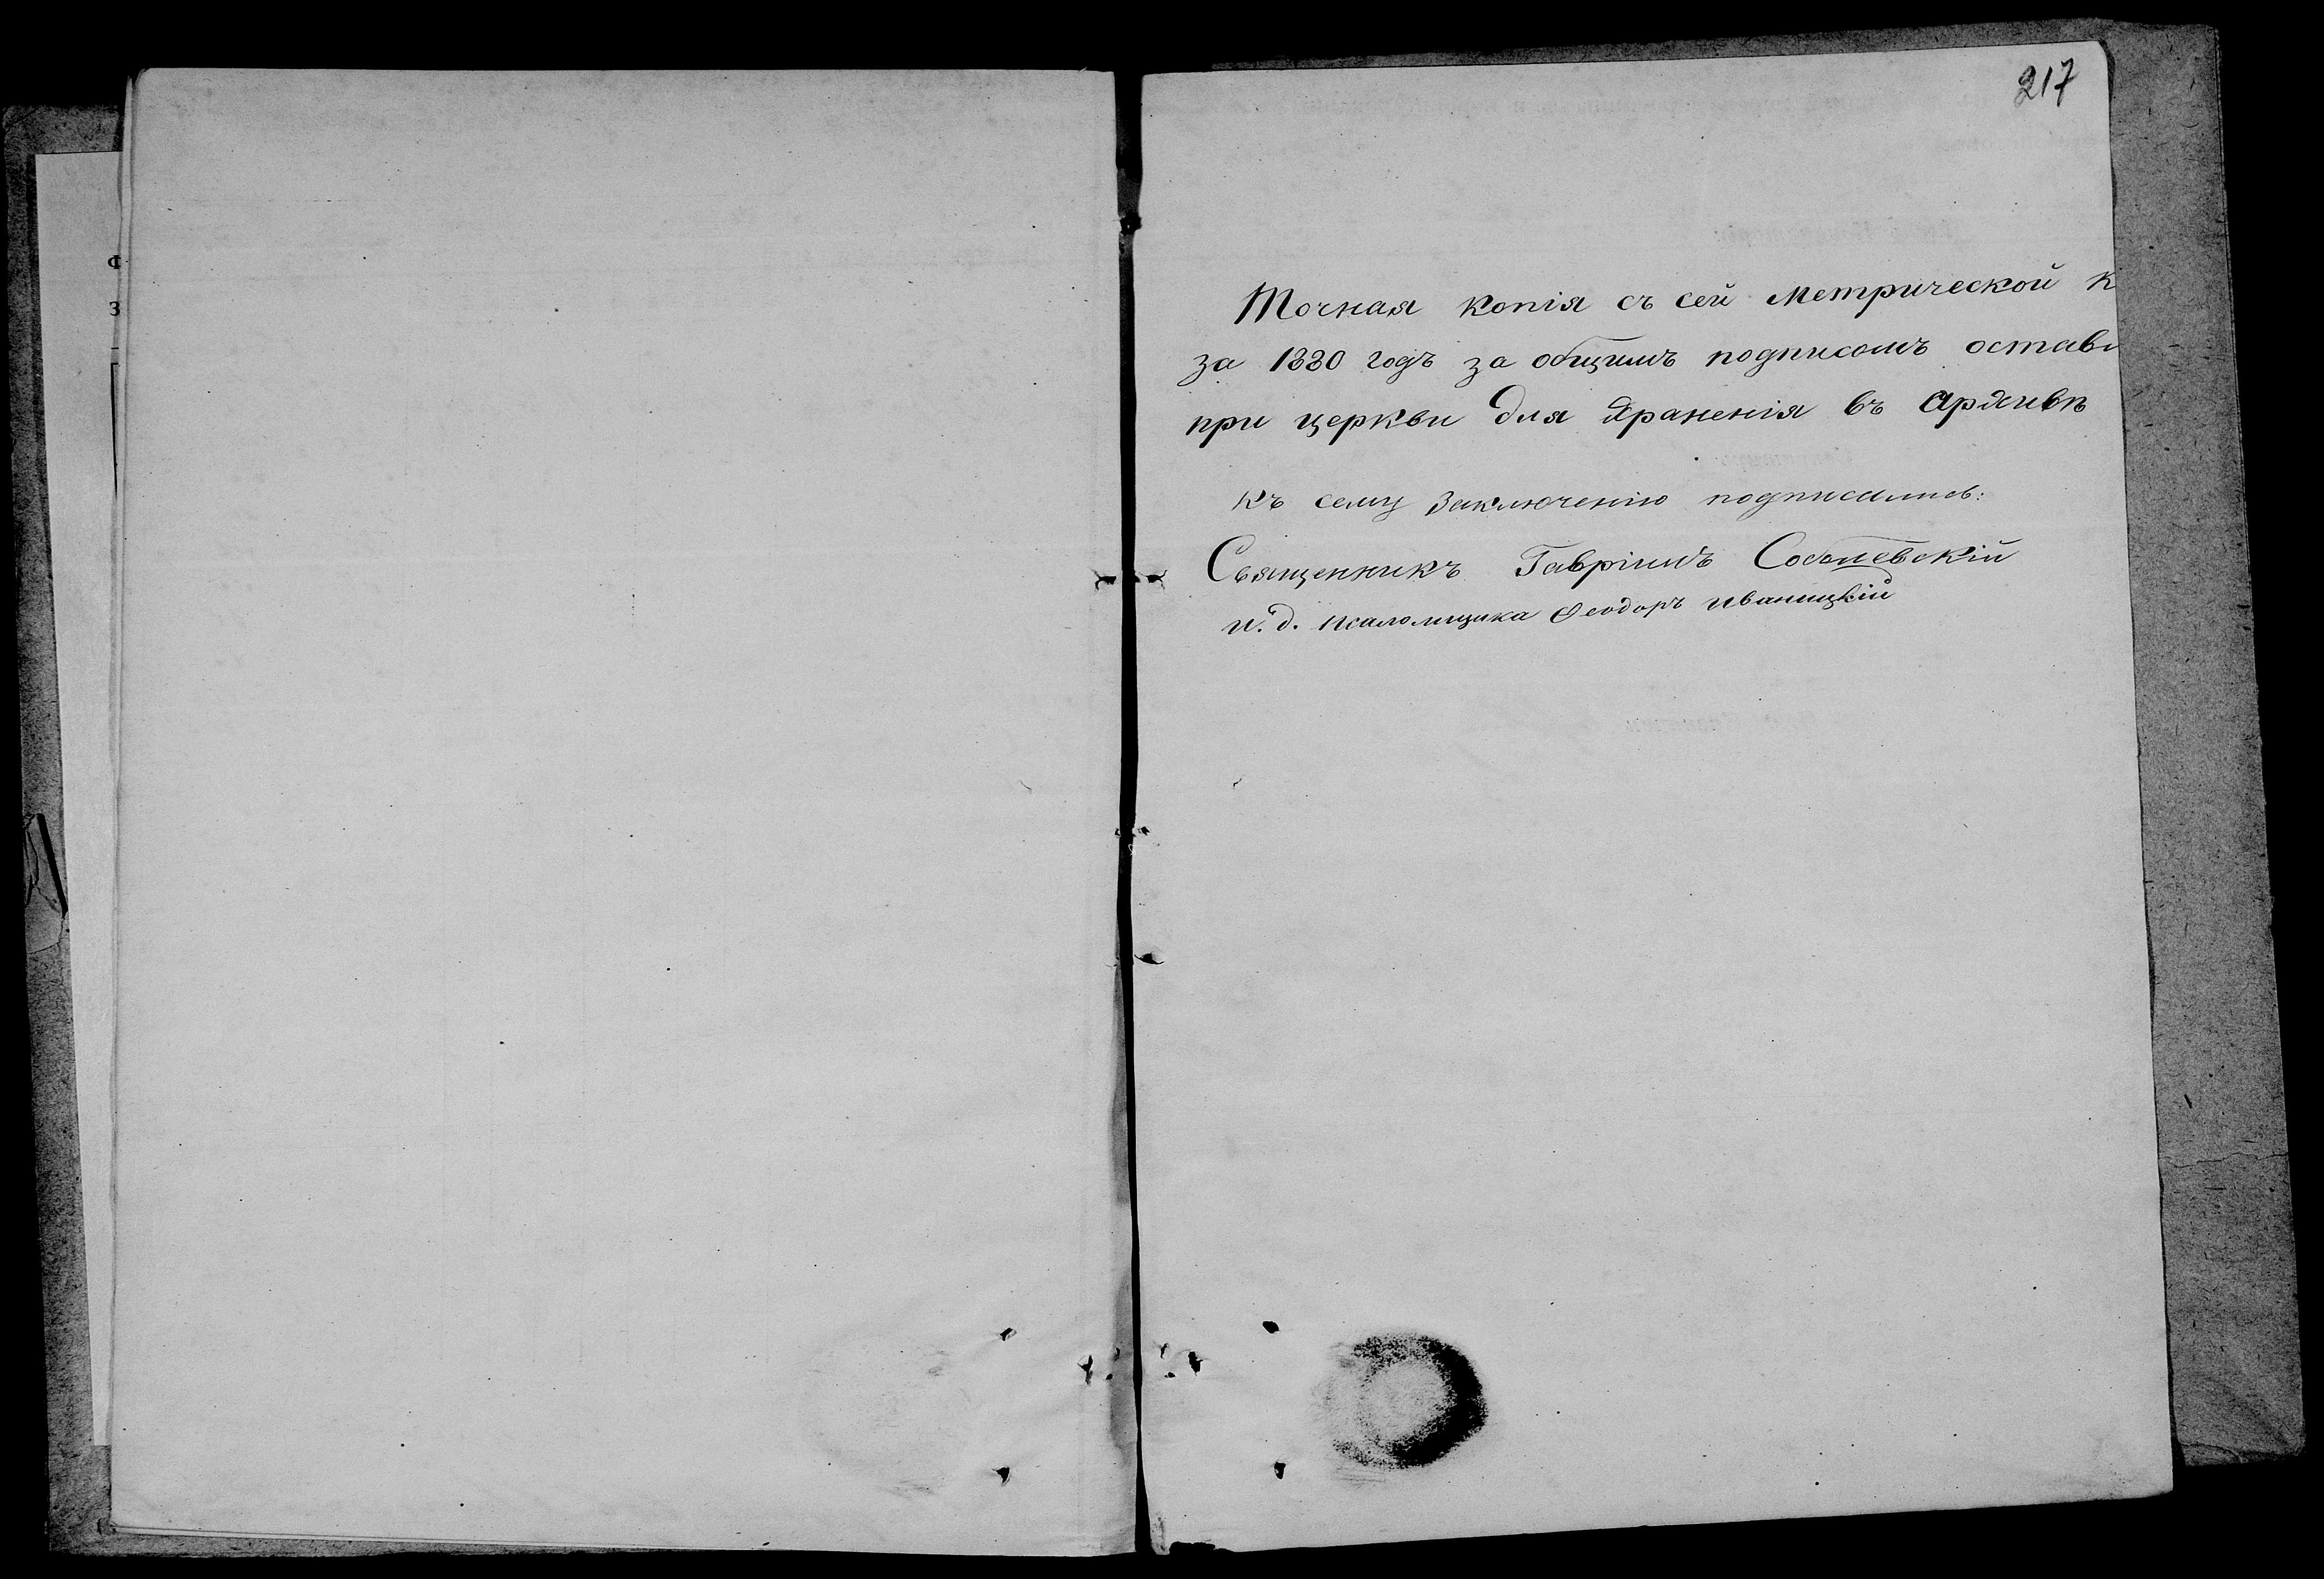 217
Точная копія съ сей Метрической К
за 1880 годъ за общимъ подписомъ остав
при церкви для храненія въ Архивѣ
Къ сему заключенію подписались:
Священникъ Гавріилъ Соболевскій
и. д. псаломщика Ѳеодоръ Иваницкій